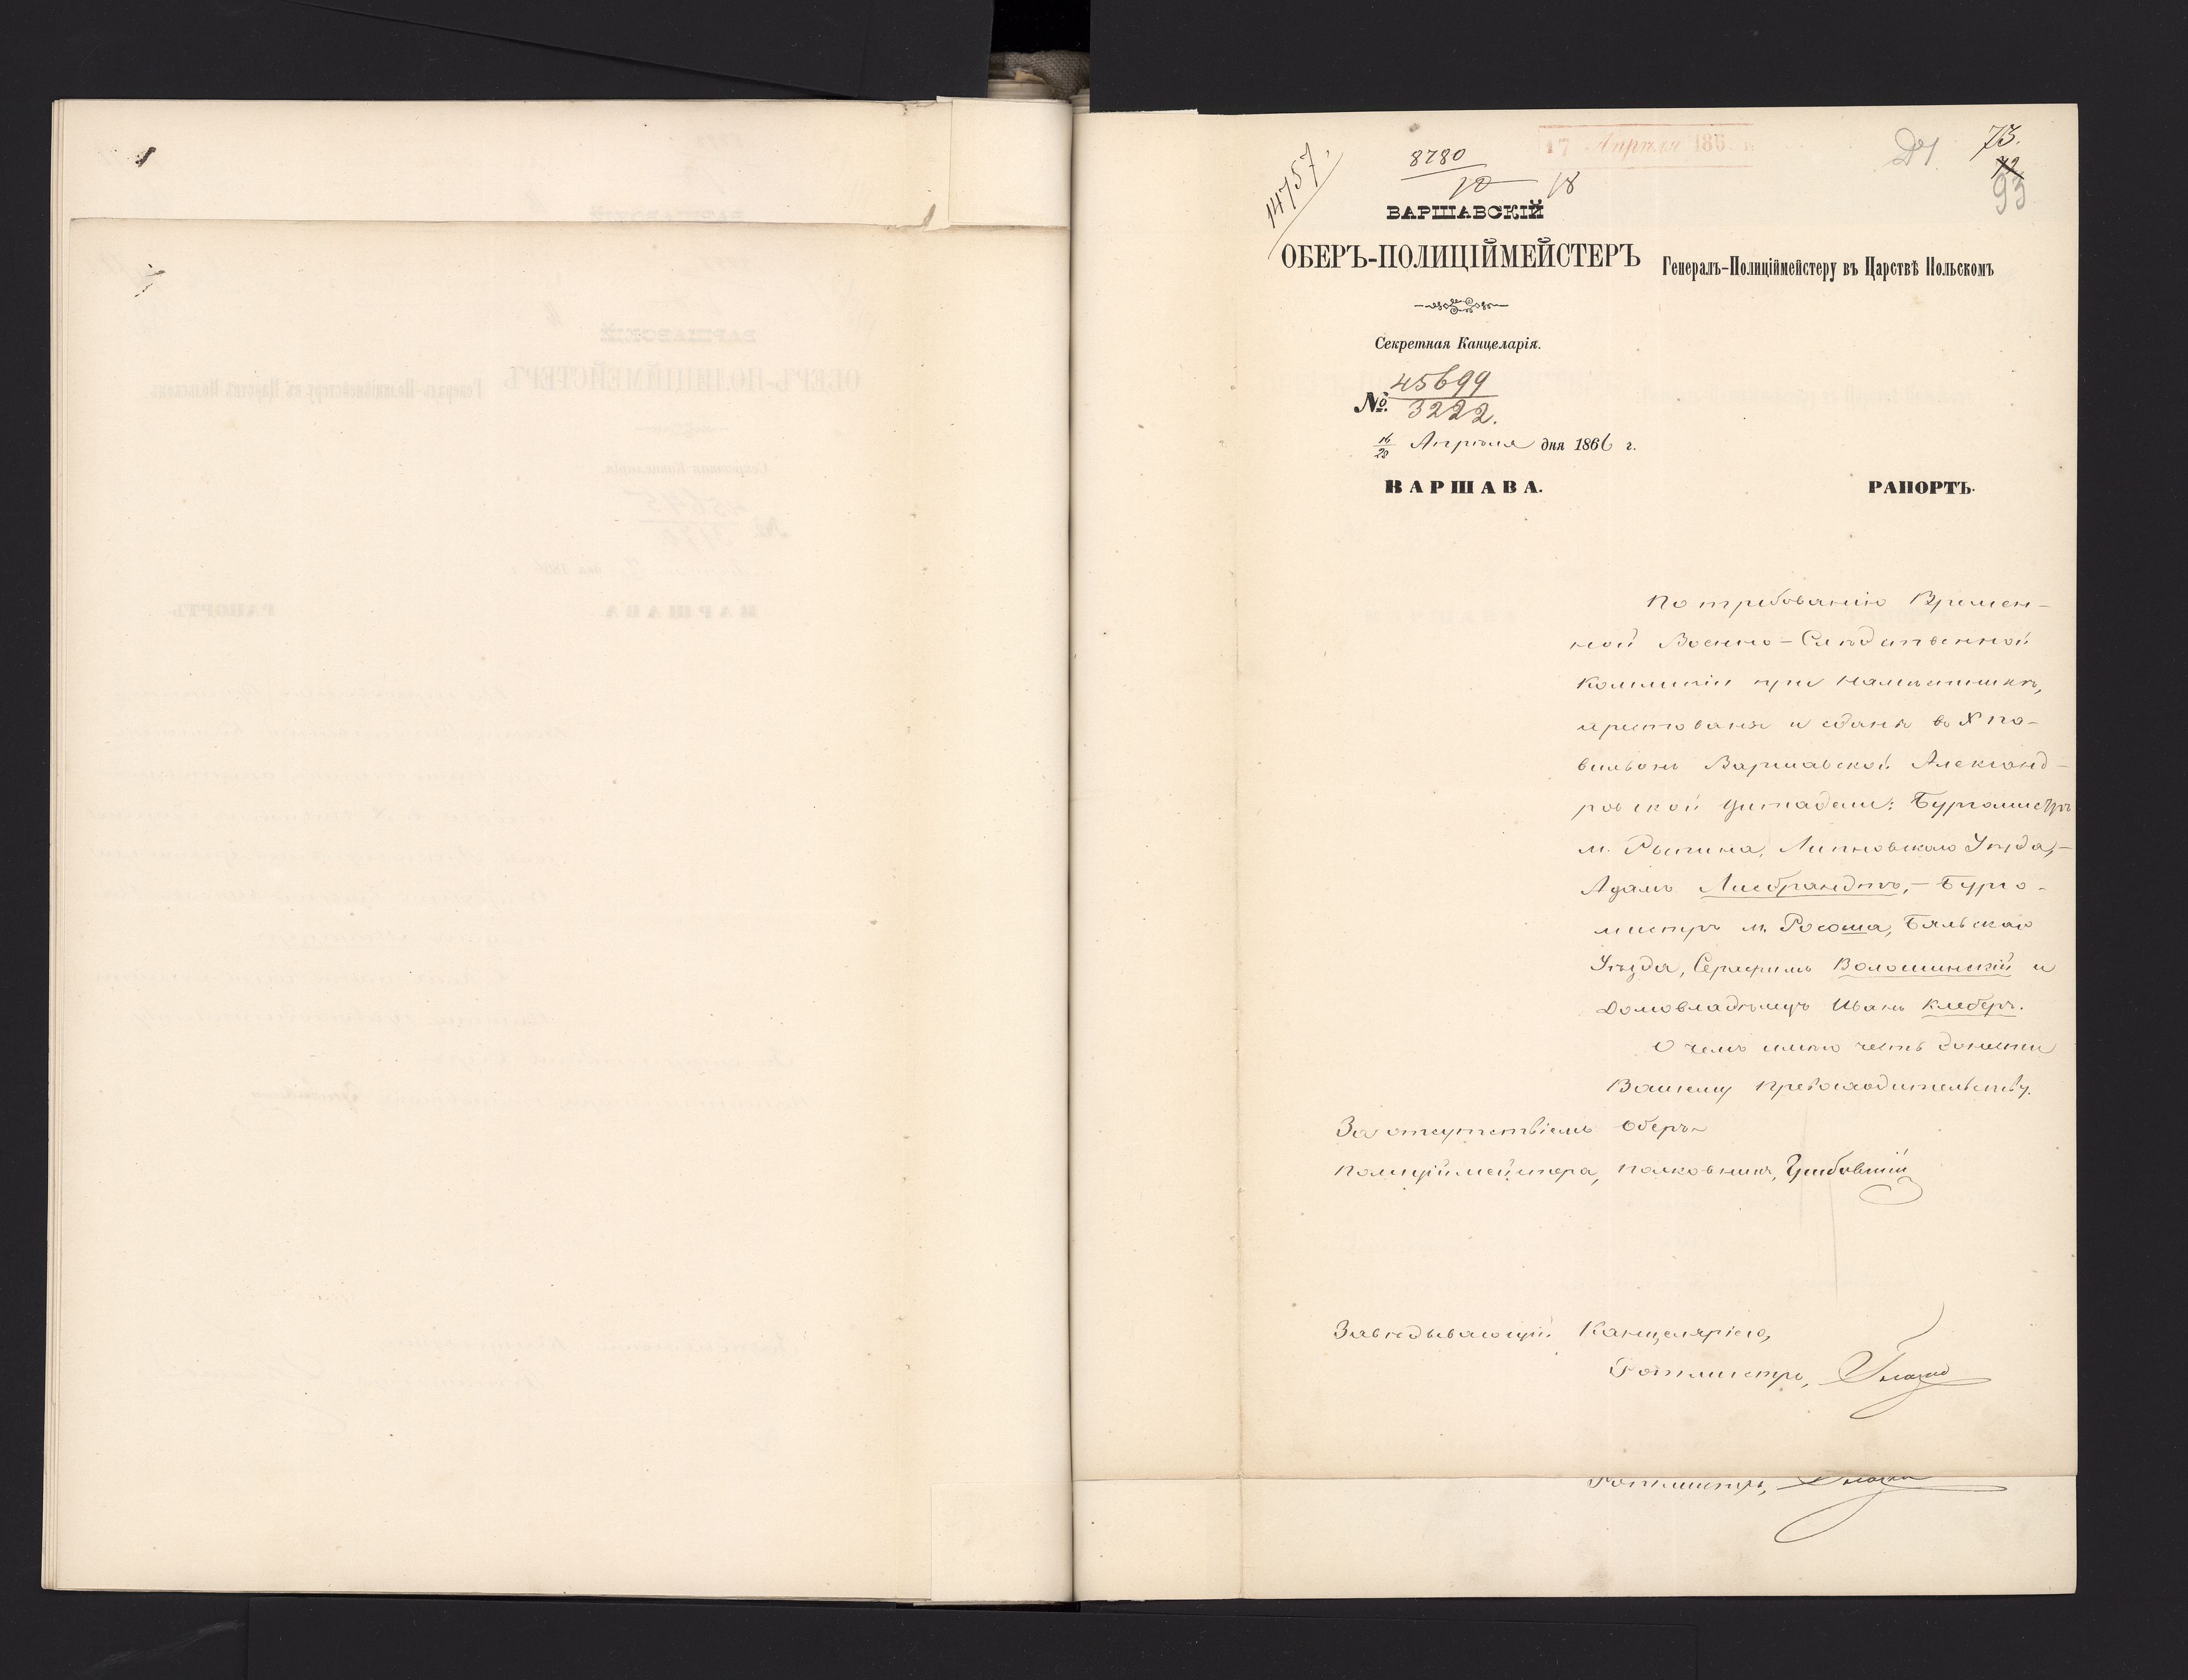 14757.
8780
10 18
17 Апрѣля 186
73.
72
93
ВАРШАВСКІЙ
ОБЕРЪ-ПОЛИЦІЙМЕЙСТЕРЪ
Генералъ-Полиціймейстеру въ Царствѣ Польскомъ
Секретная Канцеларія.
№ 45699
3222.
16/28 Апрѣля дня 1866 г.
ВАРШАВА.
РАПОРТЪ.
По требованію Времен-
ной Военно-Слѣдственной
Коммисіи при Намѣстникѣ,
арестованы и сданы въ X па-
вильонъ Варшавской Александ-
ровской цитадели: Бургомистръ
м. Рыпина, Липновскаго Уѣзда,-
Адамъ Лисбрандтъ,- Бурго-
мистръ м. Росоша, Бяльскаго
Уѣзда, Серафимъ Волошинскій и
Домовладѣлецъ Иванъ Клеберъ.
О чемъ имѣю честь донести
Вашему Превосходительству.
За отсутствіемъ Оберъ-
Полиціймейстера, Полковникъ,
Завѣдывающій Канцеляріею,
Ротмистръ,
Ротмистръ,